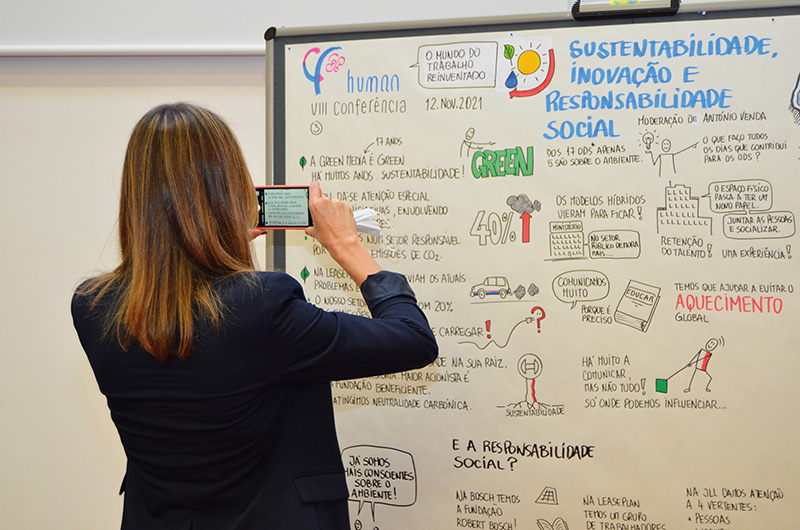 human
VIII CONFERÊNCIA
O MUNDO DO
TRABALHO
REINVENTADO
12.NOV.2021
3
SUSTENTABILIDADE,
INOVAÇÃO E
RESPONSABILIDADE
SOCIAL
MODERAÇÃO DE ANTÓNIO VENDA
17 ANOS
A GREEN MEDIA É GREEN
HÁ MUITOS ANOS. SUSTENTABILIDADE!
GREEN
DOS 17 ODS* APENAS
5 SÃO SOBRE O AMBIENTE.
O QUE FAÇO TODOS
OS DIAS QUE CONTRIBUI
PARA OS ODS?
DA-SE ATENÇÃO ESPECIAL
ENVOLVENDO
SETOR RESPONSÁVEL
EMISSÕES DE CO2.
40%
OS MODELOS HÍBRIDOS
VIERAM PARA FICAR!
MINISTÉRIO
NO SETOR
PÚBLICO DEMORA
MAIS...
O ESPAÇO FÍSICO
PASSA A TER UM
NOVO PAPEL.
JUNTAR AS PESSOAS
E SOCIALIZAR.
RETENÇÃO
DO TALENTO!
UMA EXPERIÊNCIA!
NA
OS ATUAIS
PROBLEMAS
O NOSSO
20%
CARREGAR
COMUNICAMOS
MUITO
PORQUE É
PRECISO
EDUCAR
TEMOS QUE AJUDAR A EVITAR O
AQUECIMENTO
GLOBAL
NA SUA RAIZ.
MAIOR ACIONISTA É
FUNDAÇÃO BENEFICENTE.
ATINGIMOS NEUTRALIDADE CARBÓNICA.
SUSTENTABILIDADE
HÁ MUITO A
COMUNICAR,
MAS NÃO TUDO!
SÓ ONDE PODEMOS INFLUENCIAR...
JÁ SOMOS
MAIS CONSCIENTES
SOBRE O
AMBIENTE!
E A RESPONSABILIDADE
SOCIAL?
NA BOSCH TEMOS
A FUNDAÇÃO
ROBERT BOSCH
NA LEASEPLAN
TEMOS UM GRUPO
DE TRABALHADORES
NA JLL DAMOS ATENÇÃO
A 4 VERTENTES:
• PESSOAS